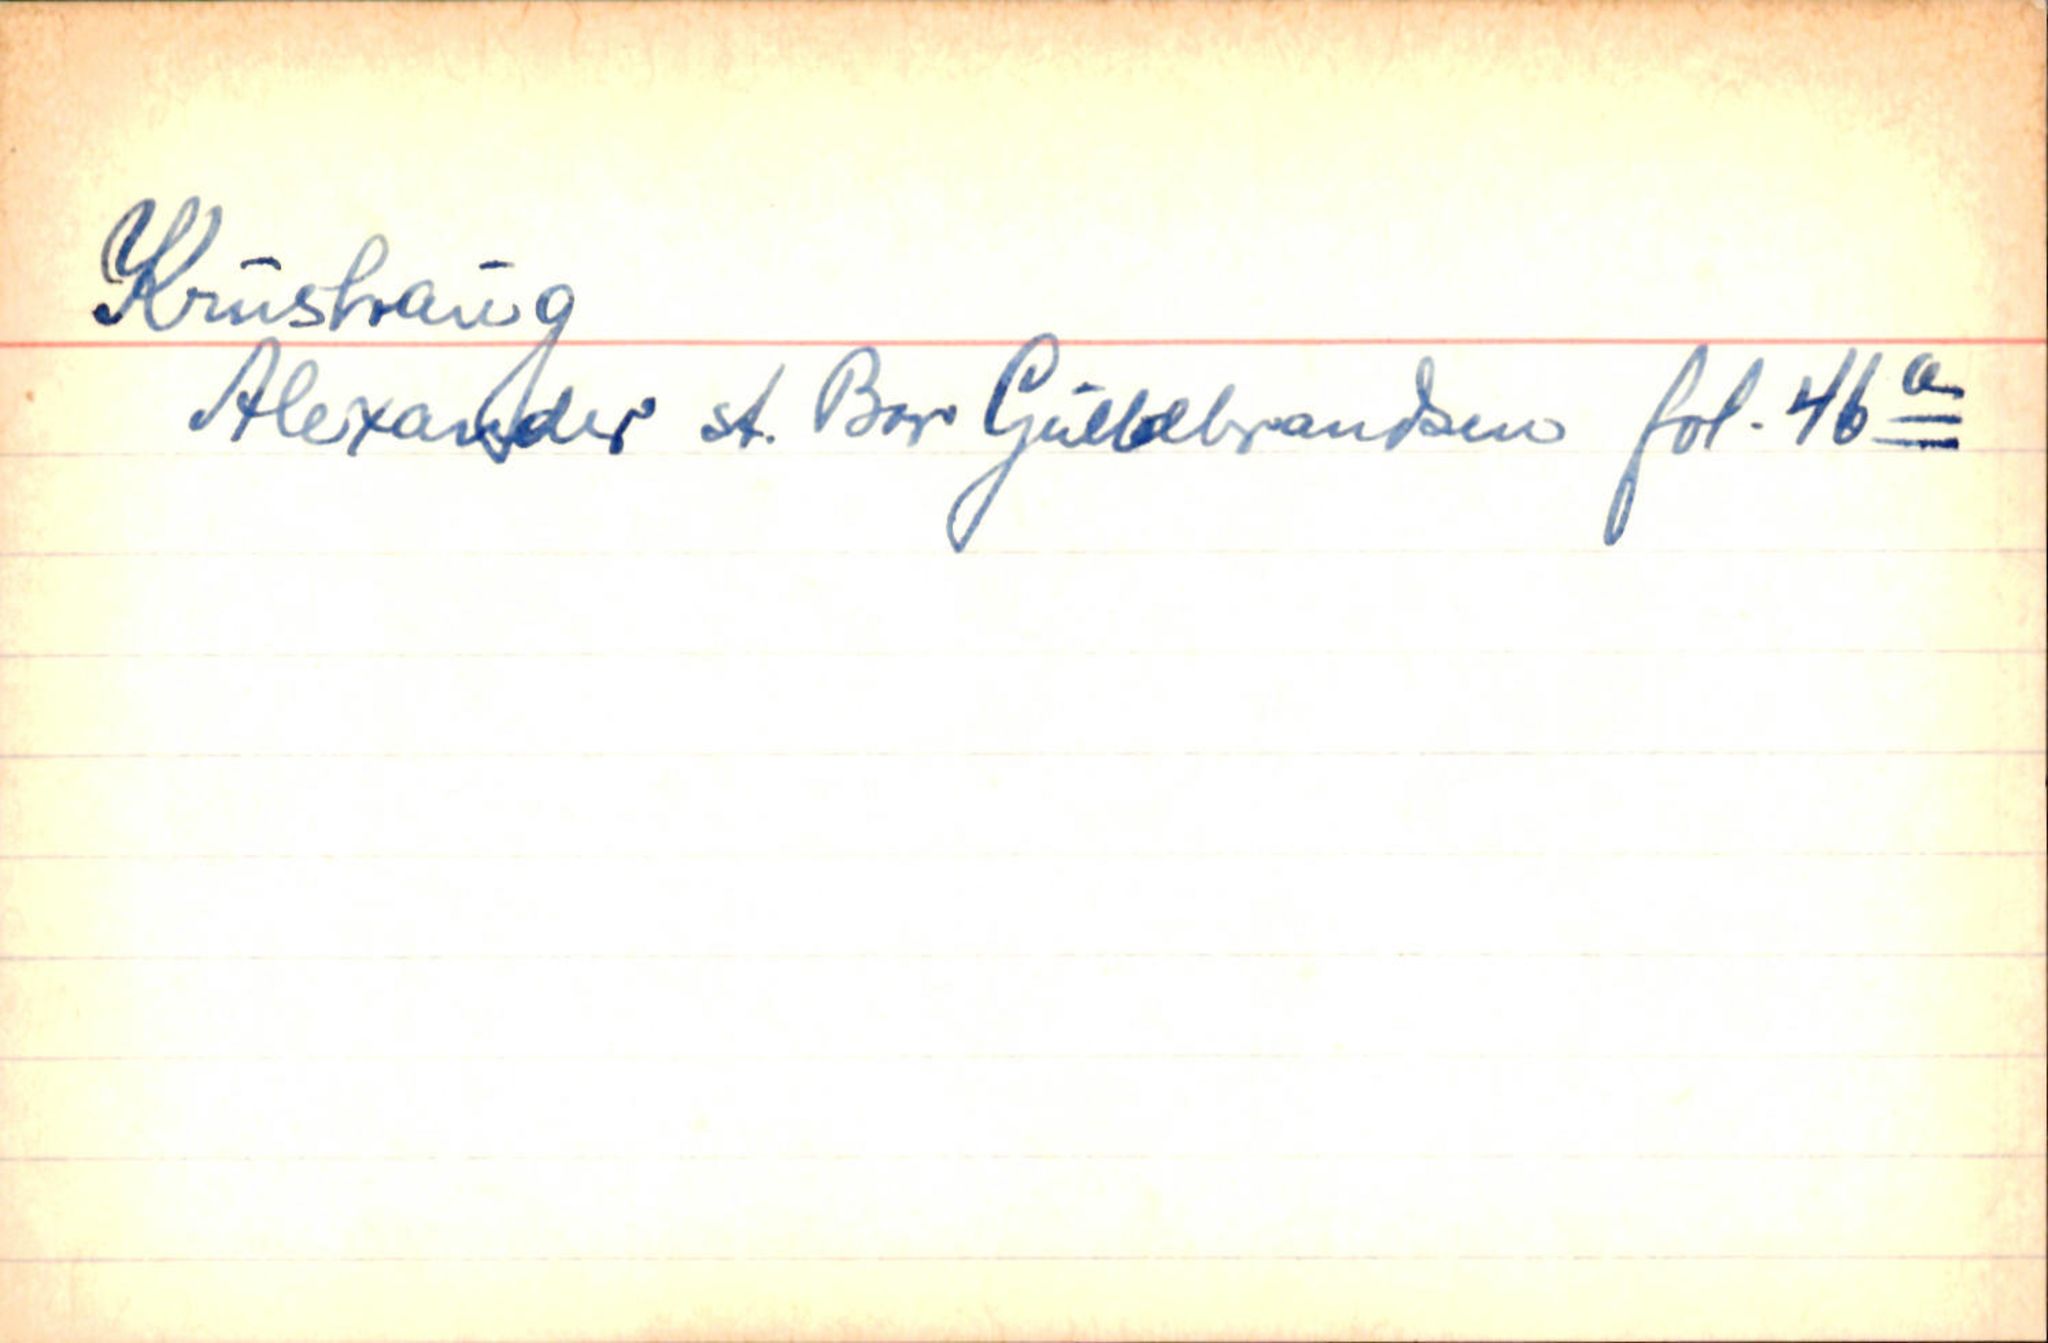 Krustraug
Alexander st. Bor Guldbrandsen fol. 46 a